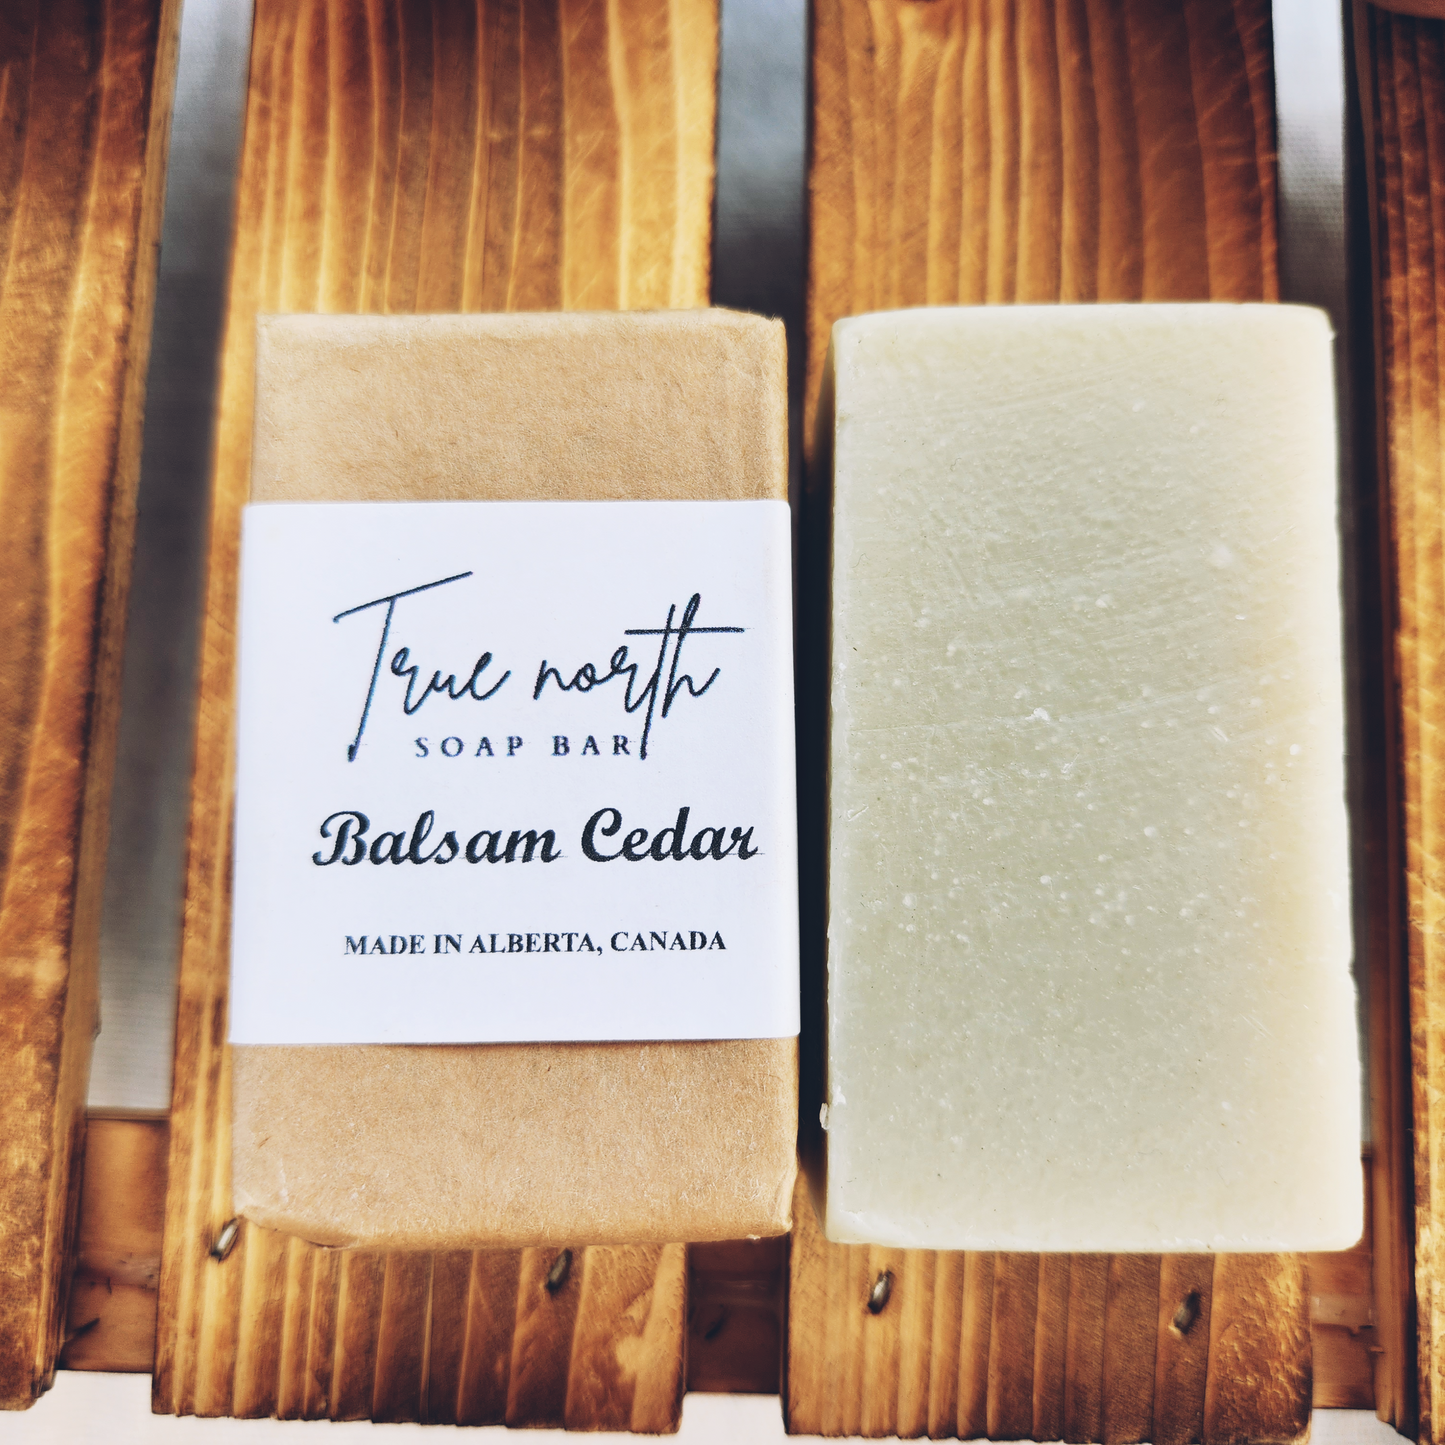 True north
SOAP BAR
Balsam Cedar
MADE IN ALBERTA, CANADA